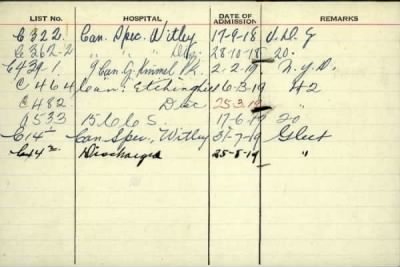 LIST No. HOSPITAL DATE OF ADMISSION REMARKS
C322. Can. Spec. Witley 17-9-18 V.D.G
C362-2 " " " Dis: 28-10-18 20.
C434-1. 9 Can. G. Kinmel Pk. 2-2-19 N.Y.D.
C464 Con. Etchinghill 16-3-19 #2
C482 Disc 25.3.19 "
A533 17-6-19 20
C14 Can Spec., Witley 31-7-19 Gleet
C14² Discharged 25-8-19 "